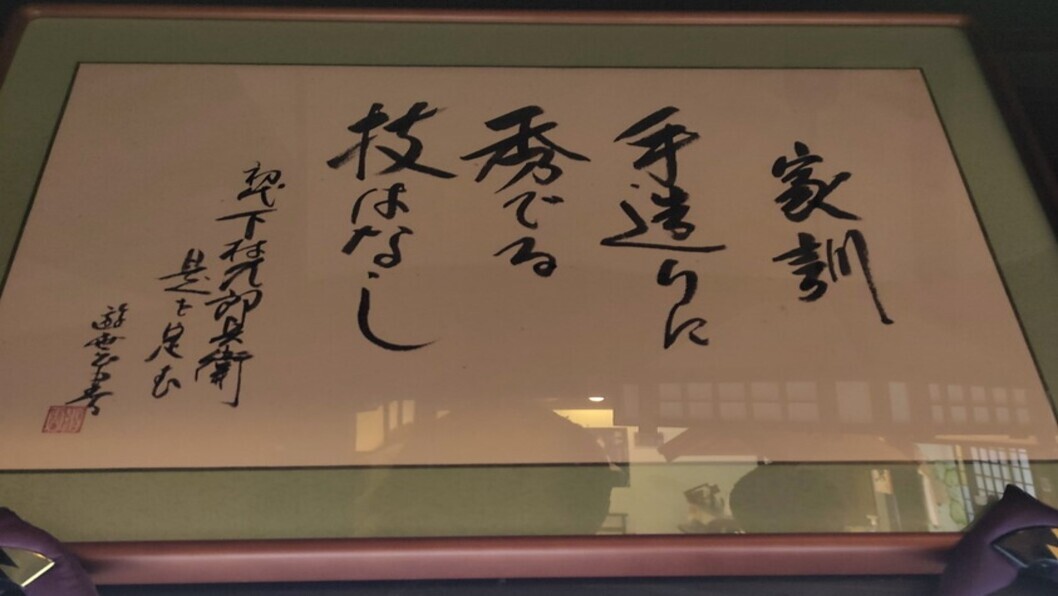 家訓
手造りに
秀でる
技はなし
初代下村九郎兵衛
是を定む
遊世書